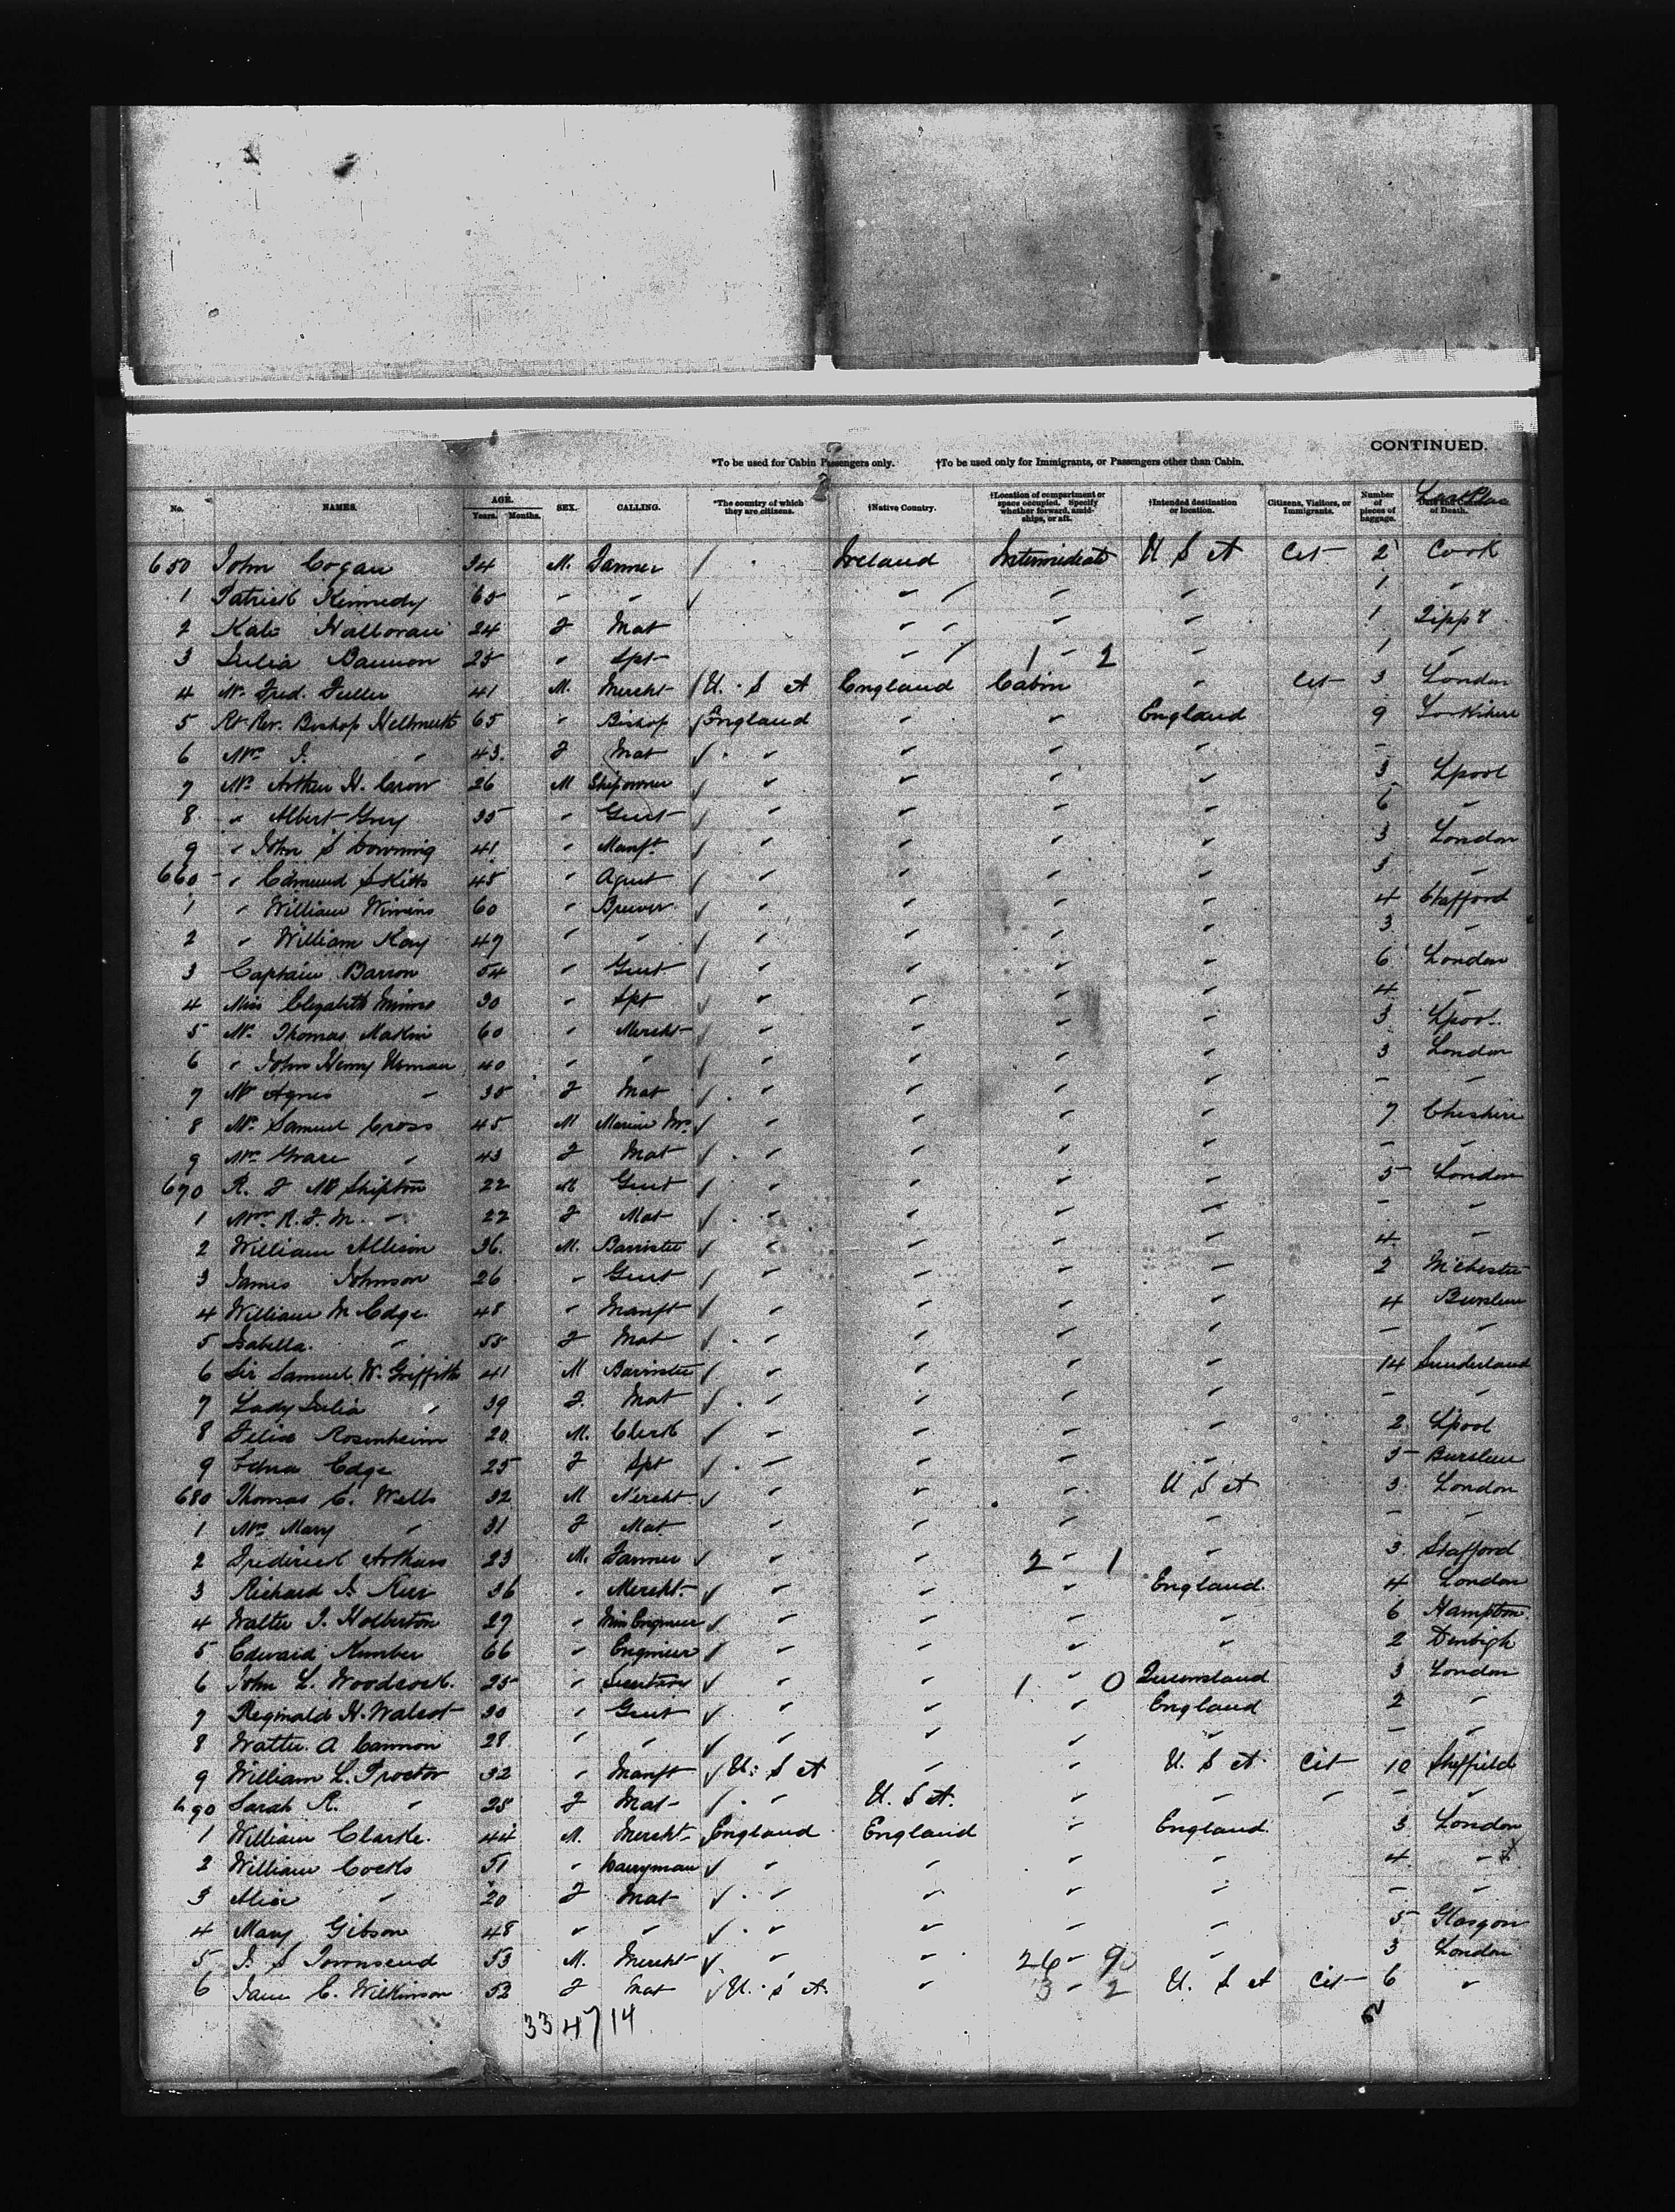 CONTINUED.
*To be used for Cabin Passengers only. †To be used only for Immigrants, or Passengers other than Cabin.
No. NAMES. AGE. Years. Months. SEX. CALLING. *The country of which they are citizens. †Native Country. †Location of compartment or space occupied. Specify whether forward, amidships, or aft. †Intended destination or location. Citizens, Visitors, or Immigrants. Number of pieces of baggage. of Death.
650 John Cogan 34 M. Farmer / Ireland Intermediate U S A Cit 2 Cork
1 Patrick Kennedy 65 " " " " " 1 "
2 Kate Halloran 24 F Mat " " " 1 Tippy
3 Julia Bannon 25 " Spt " 1 - 2 " 1 "
4 Mr Fred. Fuller 41 M. Mercht U. S A England Cabin " Cit 3 London
5 Rt Rev. Bishop Hellmuth 65 " Bishop England " " England 9
6 Mrs I. " 43 F Mat " " " " -
7 Mr Arthur H. Crow 26 M Shipowner " " " " 3 Lpool
8 " Albert Grey 35 " Gent " " " " 6 "
9 " John S Downing 41 " Manft " " " " 3 London
660 " Edmund 45 " Agent " " " " 3 "
1 " William 60 " Brewer " " " " 4 Stafford
2 " William Kay 49 " " " " " " 3 "
3 Captain Barron 54 " Gent " " " " 6 London
4 Miss Elizabeth 30 " Spt " " " " 4 "
5 Mr Thomas Makin 60 " Mercht " " " " 3 Lpool
6 " John Henry 40 " " " " " " 3 London
7 Mrs Agnes " 35 F Mat " " " " - "
8 Mr Samuel Cross 45 M " " " " 7 Cheshire
9 Mrs Grace " 43 F Mat " " " " - "
670 R. F M Shipton 22 M Gent " " " " 5 London
1 Mrs R. F. M. " 22 F Mat " " " " - "
2 William Allison 36 M. Barrister " " " " 4 "
3 James Johnson 26 " Gent " " " " 2 M'chester
4 William M Edge 48 " Manft " " " " 4 Burslem
5 Isabella " 55 F Mat " " " " - "
6 Sir Samuel W. Griffith 41 M Barrister " " " " 14 Sunderland
7 Lady Julia " 39 F. Mat " " " " - "
8 Felix Rosenheim 20 M. Clerk " " " " 2 Lpool
9 Edna Edge 25 F Spt " " " " 5 Burslem
680 Thomas C. Wells 32 M Mercht " " " U S A 3 London
1 Mrs Mary " 31 F Mat " " " " - "
2 Frederick 23 M. Farmer " " 2 - 1 " 3 Stafford
3 Richard 36 " Mercht. " " " England 4 London
4 Walter J. Holberton 27 " Min Engineer " " " " 6 Hampton
5 Edward 66 " Engineer " " " " 2 Denbigh
6 John L. Woodcock. 25 " " " 1 - 0 Queensland 3 London
7 Reginald H. Walcot 30 " Gent " " " England 2 "
8 Walter A Cannon 28 " " " " " " - "
9 William L. Proctor 32 " Manft U. S A " " U. S A Cit 10 Sheffield
690 Sarah R. " 25 F Mat " U. S A. " " " - "
1 William Clarke. 44 M. Mercht England England " England 3 London
2 William Cocks 51 " " " " " 4 "
3 Alice " 20 F Mat " " " " - "
4 Mary Gibson 48 " " " " " " 5 Glasgow
5 J. S Townsend 53 M. Mercht " " 26 - 9 " 3 London
6 Jane C. Wilkinson 52 F Mat U. S A. " 3 - 2 U. S A Cit 6 "
33 47 14